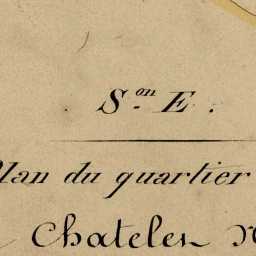 S.on E.
Plan du quartier
Chatelen